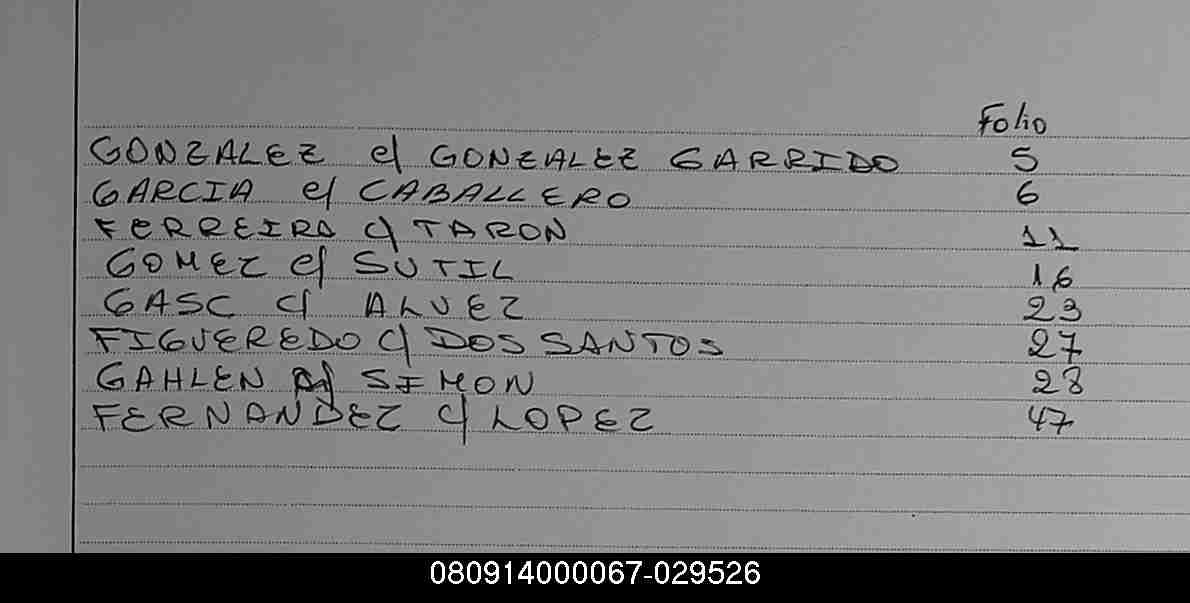 Folio
GONZALEZ c/ GONZALEZ GARRIDO 5
GARCIA c/ CABALLERO 6
FERREIRA c/ TARON 11
GOMEZ c/ SUTIL 16
GASC c/ ALVEZ 23
FIGUEREDO c/ DOS SANTOS 27
GAHLEN c/ SIMON 28
FERNANDEZ c/ LOPEZ 47
080914000067-029526